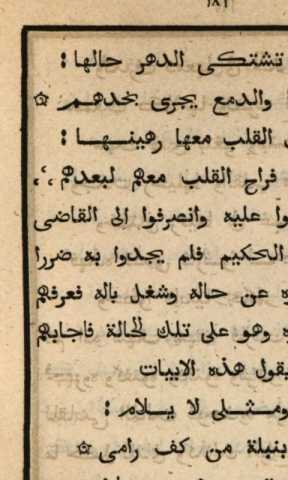 ١٨١
تشتكى الدهر حالها :
والدمع يجرى بخدهم ۞
القلب معها رهينها :
فراح القلب معهم لبعدهم
وا عليه وانصرفوا الى القاضى
الحكيم فلم يجدوا به ضررا
عن حاله وشغل باله فعرفهم
وهو على تلك الحالة فاجابهم
يقول هذه الابيات
ومثلى لا يلام :
بنبلة من كف رامى ۞